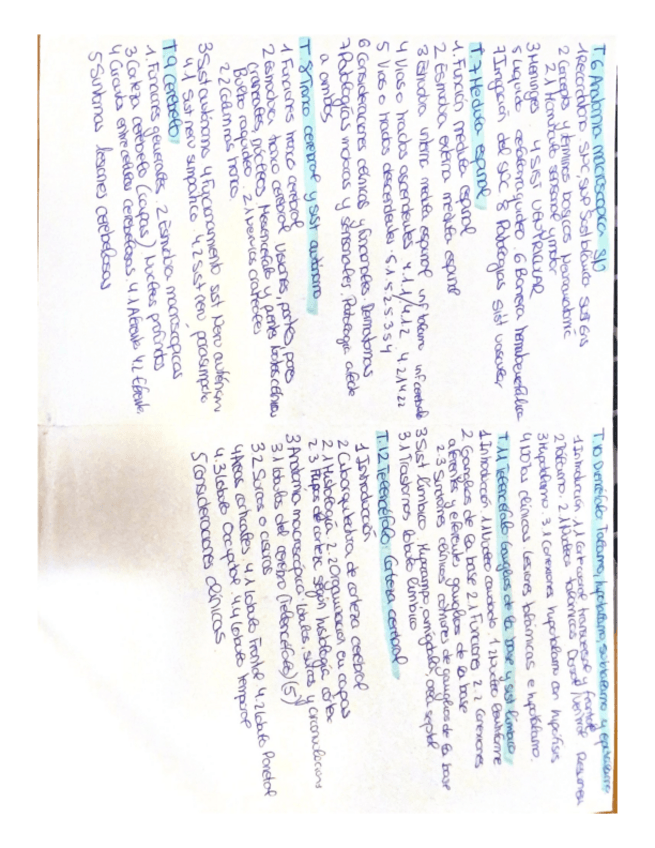 T.6 Anatomía macroscópica SNC
1 Recordatorio SNC, SNP Sust blanca sust gris
2 Concepto y términos básicos Neuroanatomía
2.1 Homúnculo sensorial y motor
3 Meninges 4 Sist ventricular
5 Líquido cefalorraquídeo 6 Barrera hematoencefálica
7 Irrigación del SNC 8 Patologías sist vascular
T.7 Médula espinal
1. Función médula espinal
2 Estructura externa médula espinal
3 Estructura interna médula espinal
4 Vías o tractos ascendentes 4.1.1/4.1.2 4.2.1/4.2.2
5 Vías o tractos descendentes 5.1 5.2 5.3 5.4
6 Consideraciones clínicas y funcionales. Dermatomas
7 Patologías motoras y sensoriales. Patología afecta
a ambas
T.8 Tronco cerebral y sist autónomo
1 Funciones tronco cerebral
2 Estructura tronco cerebral visiones, partes, pares
craneales, núcleos Mesencéfalo y puente
Bulbo raquídeo 2.1 nervios craneales
2.2 Columnas tronco
3 Sist autónomo 4 Funcionamiento sist Nerv autónomo
4.1 Sist nerv simpático 4.2 Sist nerv parasimpático
T.9 Cerebelo
1. Funciones generales 2 Estructura macroscópicas
3 Corteza cerebelo (capas) Núcleos profundos
4 Circuito entre células cerebelosas 4.1 Aferente 4.2 Eferente
5 Síntomas lesiones cerebelosas
T.10 Diencéfalo Tálamo, hipotálamo, subtálamo y epitálamo
1 Introducción 1.1 Corte coronal transversal y frontal
2 Tálamo. 2.1 Núcleos talámicos Dorsal/Ventral Resumen
3 Hipotálamo 3.1 Conexiones hipotálamo con hipófisis
4 Notas clínicas lesiones talámicas e hipotálamo
T.11 Telencéfalo Ganglios de la base y sist límbico
1 Introducción 1.1 Núcleo caudado 1.2 Núcleo lentiforme
2 Ganglios de la base 2.1 Funciones 2.2 Conexiones
aferentes y eferentes ganglios de la base
2.3 Síndromes clínicos comunes de ganglios de la base
3 Sist límbico Hipocampo, amígdala, área septal
3.1 Trastornos lóbulo límbico
T.12 Telencéfalo: Corteza cerebral
1 Introducción
2 Citoarquitectura de corteza cerebral
2.1 Histología 2.2 Organización en capas
2.3 Tipos de corteza según histología
3 Anatomía macroscópica: lóbulos, surcos y circunvoluciones
3.1 lóbulos del cerebro (Telencéfalo) (5)
3.2 Surcos o cisuras
4 Áreas corticales 4.1 lóbulo Frontal 4.2 lóbulo Parietal
4.3 lóbulo Occipital 4.4 lóbulo temporal
5 Consideraciones clínicas